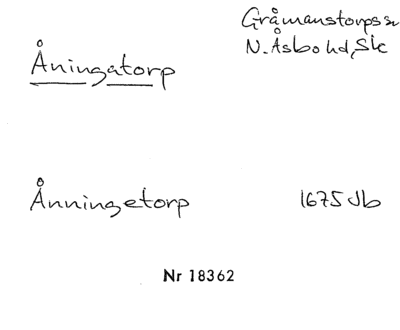 Gråmanstorps sn
Åningatorp
N. Åsbo hd, Sk
Ånningetorp 1675 Jb
Nr 18362